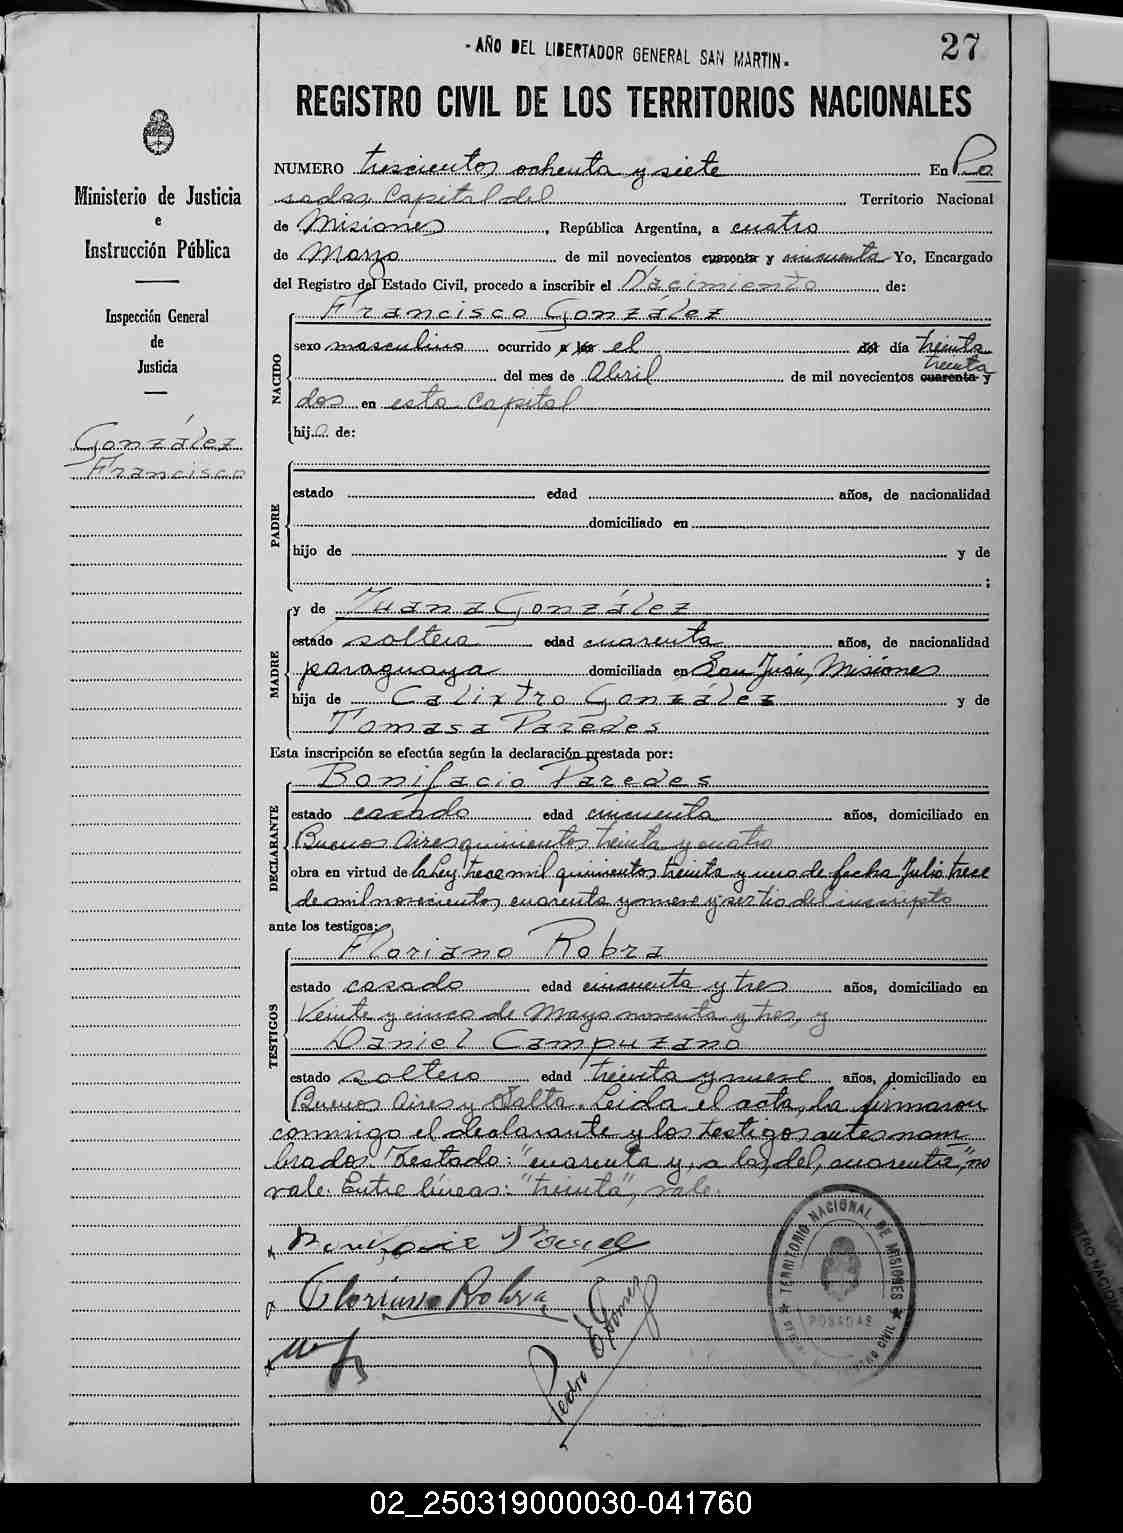 - AÑO DEL LIBERTADOR GENERAL SAN MARTIN.
27
REGISTRO CIVIL DE LOS TERRITORIOS NACIONALES
Ministerio de Justicia
e
Instrucción Pública
Inspección General
de
Justicia
González
Francisco
NUMERO trescientos ochenta y siete En Po
sadas Capital del Territorio Nacional
de Misiones, República Argentina, a cuatro
de Marzo de mil novecientos cuarenta y cincuenta Yo, Encargado
del Registro del Estado Civil, procedo a inscribir el Nacimiento de:
NACIDO
Francisco González
sexo masculino ocurrido a las el del día treinta
treinta
del mes de Abril de mil novecientos cuarenta y
dos en esta Capital
hijo de:
PADRE
estado edad años, de nacionalidad
domiciliado en
hijo de y de
;
MADRE
y de Juana González
estado soltera edad cuarenta años, de nacionalidad
paraguaya domiciliada en San José, Misiones
hija de Calixtro González y de
Tomasa Paredes
Esta inscripción se efectúa según la declaración prestada por:
DECLARANTE
Bonifacio Paredes
estado casado edad cincuenta años, domiciliado en
Buenos Aires quinientos treinta y cuatro
obra en virtud de la Ley trece mil quinientos treinta y uno de fecha Julio trece
de mil novecientos cuarenta y nueve y ser tio del inscripto
ante los testigos:
TESTIGOS
Floriano Robra
estado casado edad cincuenta y tres años, domiciliado en
Veinte y cinco de Mayo noventa y tres, y
Daniel Campuzano
estado soltero edad treinta y nueve años, domiciliado en
Buenos Aires y Salta. Leida el acta, la firmaron
conmigo el declarante y los testigos antes nom
brados. Testado: "cuarenta y, a las, del, cuarenta", no
vale. Entre líneas: "treinta", vale.
Floriano Robra
Pedro E. Gomez
TERRITORIO NACIONAL DE MISIONES
POSADAS
02_250319000030-041760